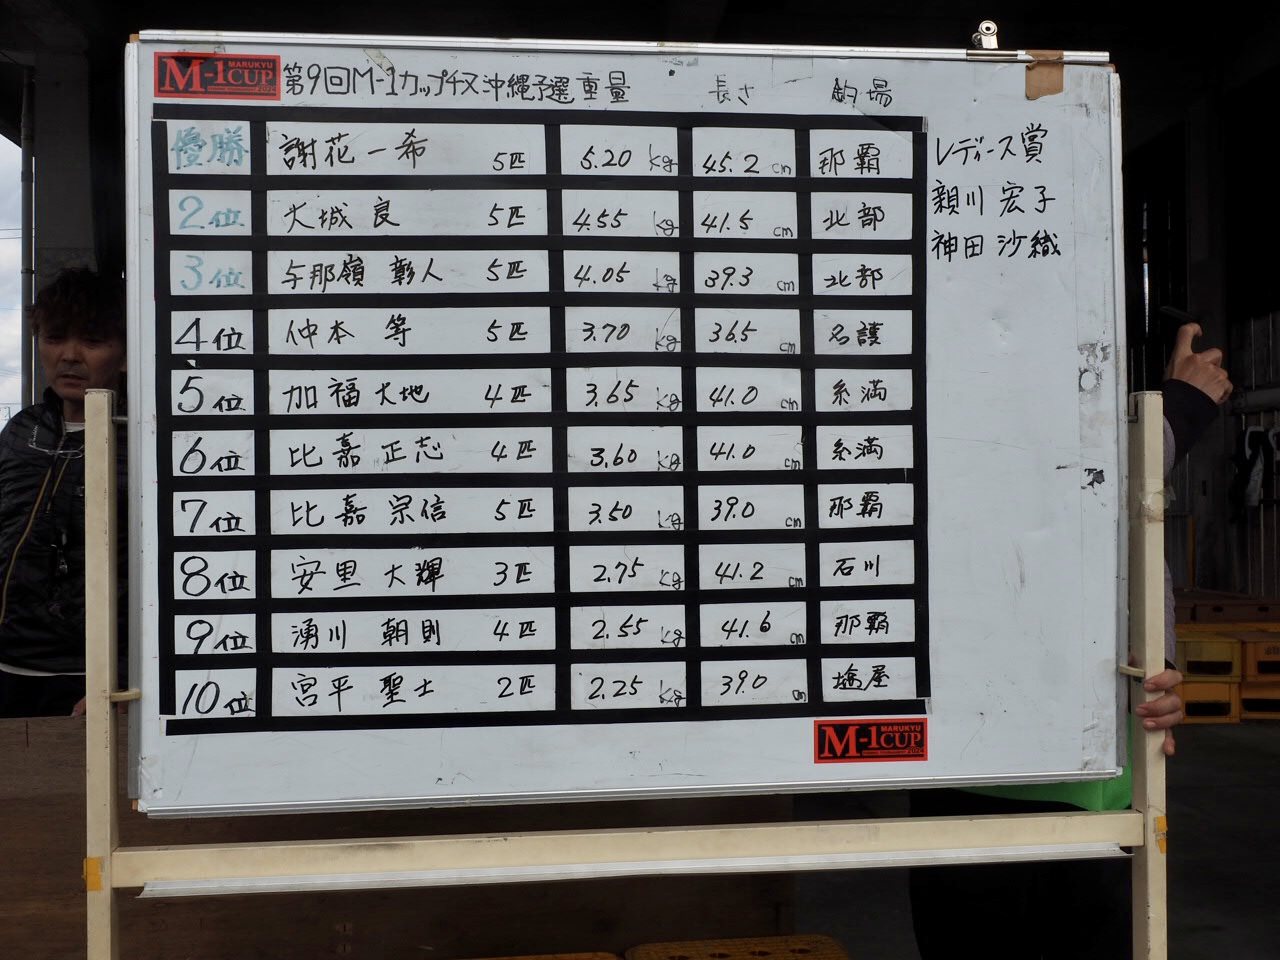 MARUKYU
M-1CUP
2024
第9回M-1カップチヌ沖縄予選 重量 長さ 釣場
優勝 謝花一希 5匹 5.20 kg 45.2 cm 那覇
2位 大城良 5匹 4.55 kg 41.5 cm 北部
3位 与那嶺彰人 5匹 4.05 kg 39.3 cm 北部
4位 仲本等 5匹 3.70 kg 36.5 cm 名護
5位 加福大地 4匹 3.65 kg 41.0 cm 糸満
6位 比嘉正志 4匹 3.60 kg 41.0 cm 糸満
7位 比嘉宗信 5匹 3.50 kg 39.0 cm 那覇
8位 安里大輝 3匹 2.75 kg 41.2 cm 石川
9位 湧川朝則 4匹 2.55 kg 41.6 cm 那覇
10位 宮平聖士 2匹 2.25 kg 39.0 cm 塩屋
レディース賞
親川宏子
神田沙織
MARUKYU
M-1CUP
2024